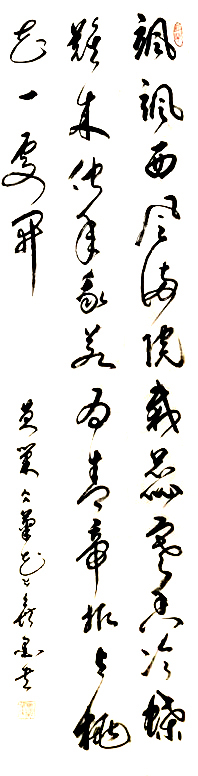 颯颯西风满院栽蕊寒香冷蝶
難来他年我若为青帝报与桃
花一处开
黄巢
菊花